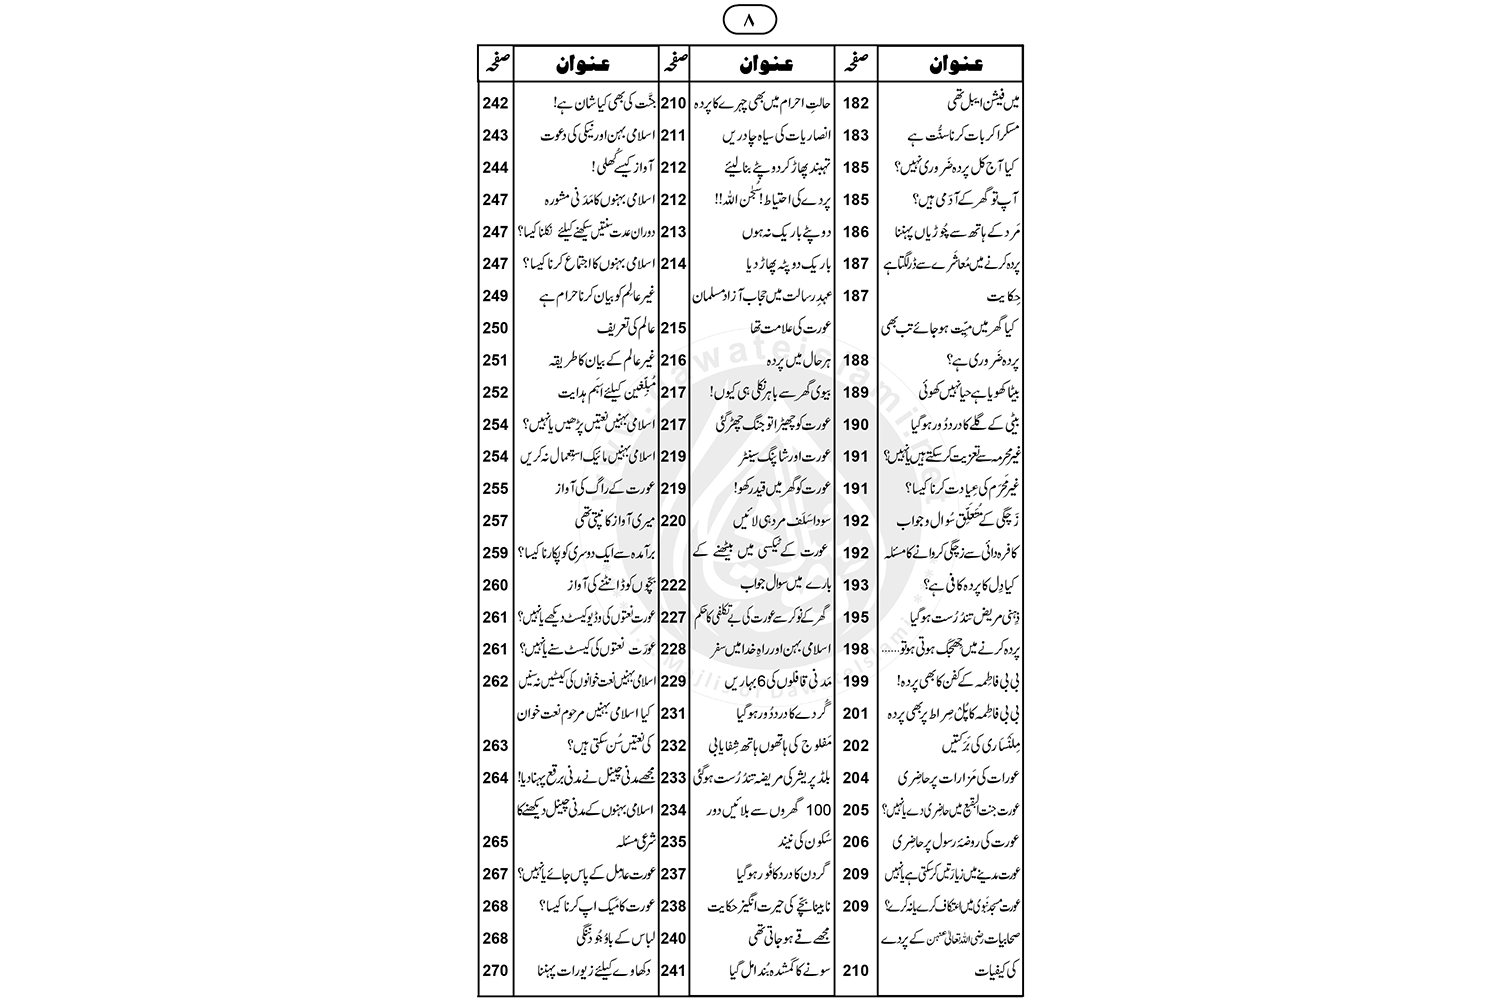 ۸
عنوان صفحہ
میں فیشن ایبل تھی 182
مسکرا کر بات کرنا سنّت ہے 183
کیا آج کل پردہ ضَروری نہیں؟ 185
آپ تو گھر کے آدَمی ہیں؟ 185
مَرد کے ہاتھ سے چُوڑیاں پہننا 186
پردہ کرنے میں مُعاشَرے سے ڈر لگتا ہے 187
حِکایت 187
کیا گھر میں میِّت ہو جائے تب بھی
پردہ ضَروری ہے؟ 188
بیٹا کھویا ہے حیا نہیں کھوئی 189
بیٹی کے گلے کا درد دُور ہوگیا 190
غیر محرمہ سے تعزیت کر سکتے ہیں یا نہیں؟ 191
غیر مَحرَم کی عِیادت کرنا کیسا؟ 191
زَچگی کے مُتَعَلِّق سُوال و جواب 192
کافرہ دائی سے زچگی کروانے کا مسئلہ 192
کیا دِل کا پردہ کافی ہے؟ 193
ذِہنی مریض تندُرُست ہوگیا 195
پردہ کرنے میں جِھجَک ہوتی ہو تو...... 198
بی بی فاطِمہ کے کفن کا بھی پردہ! 199
بی بی فاطِمہ کا پُلْ صِراط پر بھی پردہ 201
مِلَنْساری کی بَرَکتیں 202
عورات کی مَزارات پر حاضِری 204
عورت جنت البقیع میں حاضِری دے یا نہیں؟ 205
عورت کی روضۂ رسول پر حاضِری 206
عورت مدینے میں زیارَتیں کر سکتی ہے یا نہیں 209
عورت مسجدِ نَبَوی میں اعتکاف کرے یا نہ کرے؟ 209
صَحابیات رضی اللہ تعالیٰ عنہن کے پردے
کی کیفیات 210
عنوان صفحہ
حالتِ احرام میں بھی چہرے کا پردہ 210
انصاریات کی سیاہ چادریں 211
تہبند پھاڑ کر دوپٹے بنا لیئے 212
پردے کی احتیاط! سُبْحٰنَ اللہ!! 212
دوپٹے باریک نہ ہوں 213
باریک دوپٹہ پھاڑ دیا 214
عہدِ رسالت میں حجاب آزاد مسلمان
عورت کی علامت تھا 215
ہر حال میں پردہ 216
بیوی گھر سے باہر نکلی ہی کیوں! 217
عورت کو چھیڑا تو جنگ چھڑ گئی 217
عورت اور شاپنگ سینٹر 219
عورت کو گھر میں قید رکھو! 219
سودا سَلَف مرد ہی لائیں 220
عورت کے ٹیکسی میں بیٹھنے کے
بارے میں سوال جواب 222
گھر کے نوکر سے عورت کی بے تکلفی کا حکم 227
اسلامی بہن اور راہِ خدا میں سفر 228
مَدَنی قافلوں کی 6 بہاریں 229
گُردے کا درد دُور ہوگیا 231
مَفلوج کی ہاتھوں ہاتھ شِفایابی 232
بلڈ پریشر کی مریضہ تندُرُست ہوگئی 233
100 گھروں سے بلائیں دور 234
سُکون کی نیند 235
گردن کا درد کافُور ہوگیا 237
نابینا بچّے کی حیرت انگیز حکایت 238
مجھے قے ہو جاتی تھی 240
سونے کا گمشدہ بُندا مل گیا 241
عنوان صفحہ
جنَّت کی بھی کیا شان ہے! 242
اسلامی بہن اور نیکی کی دعوت 243
آواز کیسے کُھلی! 244
اسلامی بہنوں کا مَدَنی مشورہ 247
دورانِ عدت سنتیں سیکھنے کیلئے نکلنا کیسا؟ 247
اسلامی بہنوں کا اجتماع کرنا کیسا؟ 247
غیرِ عالِم کو بیان کرنا حرام ہے 249
عالم کی تعریف 250
غیر عالم کے بیان کا طریقہ 251
مُبلِّغین کیلئے اہَم ہدایت 252
اسلامی بہنیں نعتیں پڑھیں یا نہیں؟ 254
اسلامی بہنیں مائیک استِعمال نہ کریں 254
عورت کے راگ کی آواز 255
میری آواز کانپتی تھی 257
برآمدہ سے ایک دوسری کو پکارنا کیسا؟ 259
بچّوں کو ڈانٹنے کی آواز 260
عورت نعتوں کی وڈیو کیسٹ دیکھے یا نہیں؟ 261
عورَت نعتوں کی کیسٹ سنے یا نہیں؟ 261
اسلامی بہنیں نعت خوانوں کی کیسٹیں نہ سنیں 262
کیا اسلامی بہنیں مرحوم نعت خوان
کی نعتیں سُن سکتی ہیں؟ 263
مجھے مدنی چینل نے مدنی برقع پہنا دیا! 264
اسلامی بہنوں کے مدنی چینل دیکھنے کا
شَرعی مسئلہ 265
عورت عامِل کے پاس جائے یا نہیں؟ 267
عورت کا میک اپ کرنا کیسا؟ 268
لباس کے باوُجُود ننگی 268
دکھاوے کیلئے زیورات پہننا 270
www.dawateislami.net
I.T Majlis of DawateIslami